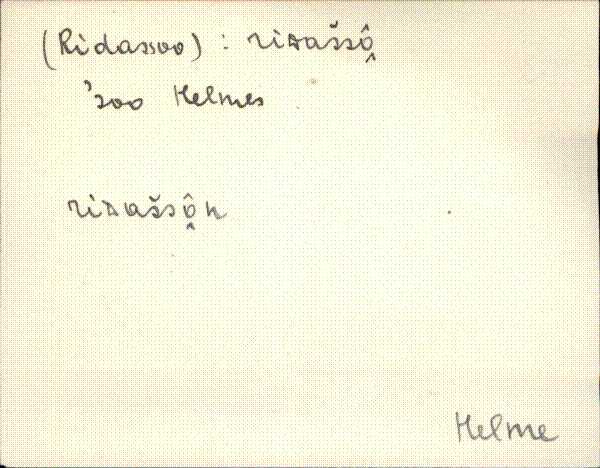 (Ridassoo) : riᴅašsô̭
'soo Helmes
riᴅašsô̭n
Helme